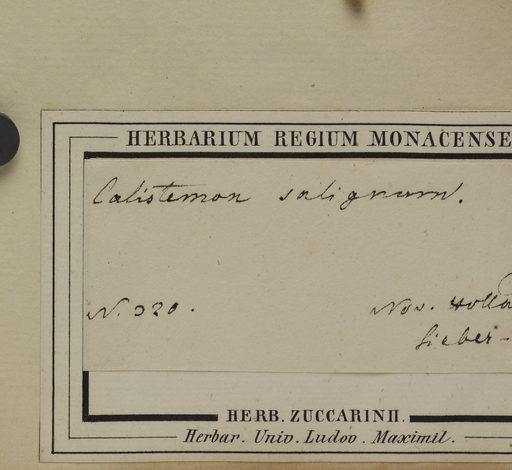 HERBARIUM REGIUM MONACENSE
Calistemon salignum.
N. 320.
Nov. Holla
Sieber-
HERB. ZUCCARINII.
Herbar. Univ. Ludov. Maximil.